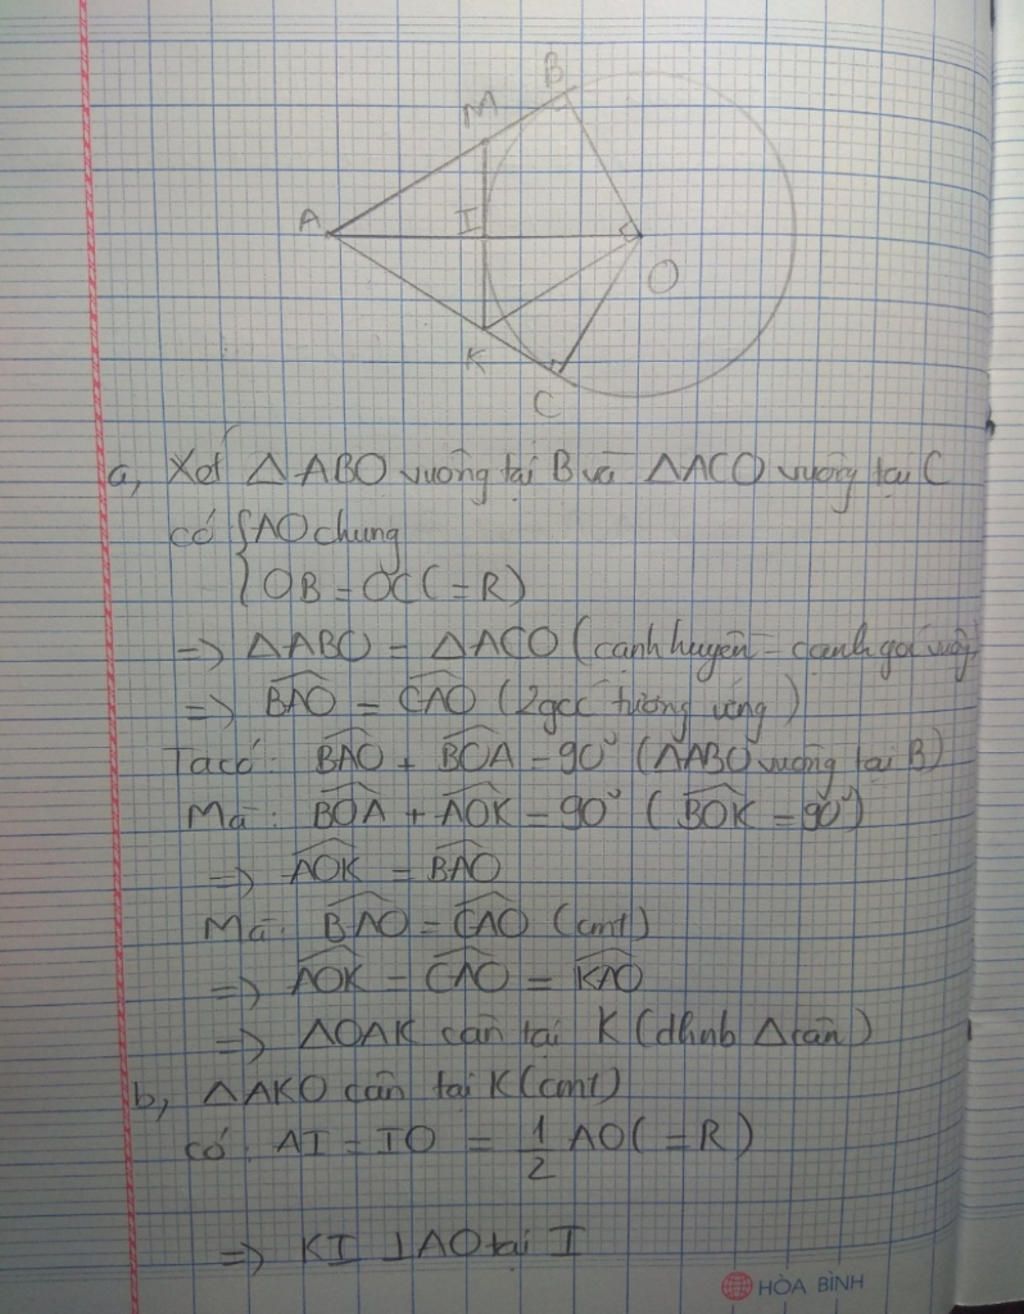 B
M
A
I
O
K
C
a, Xét △ABO vuông tại B và △ACO vuông tại C
có {AO chung
{OB = OC (=R)
=> △ABO = △ACO (cạnh huyền - cạnh góc vuông)
=> BAO = CAO (2 góc tương ứng)
Ta có: BAO + BOA = 90° (△ABO vuông tại B)
Mà: BOA + AOK = 90° (BOK = 90°)
=> AOK = BAO
Mà: BAO = CAO (cmt)
=> AOK = CAO = KAO
=> △OAK cân tại K (dhnb △ cân)
b, △AKO cân tại K (cmt)
có: AI = IO = 1/2 AO (=R)
=> KI ⊥ AO tại I
HÒA BÌNH